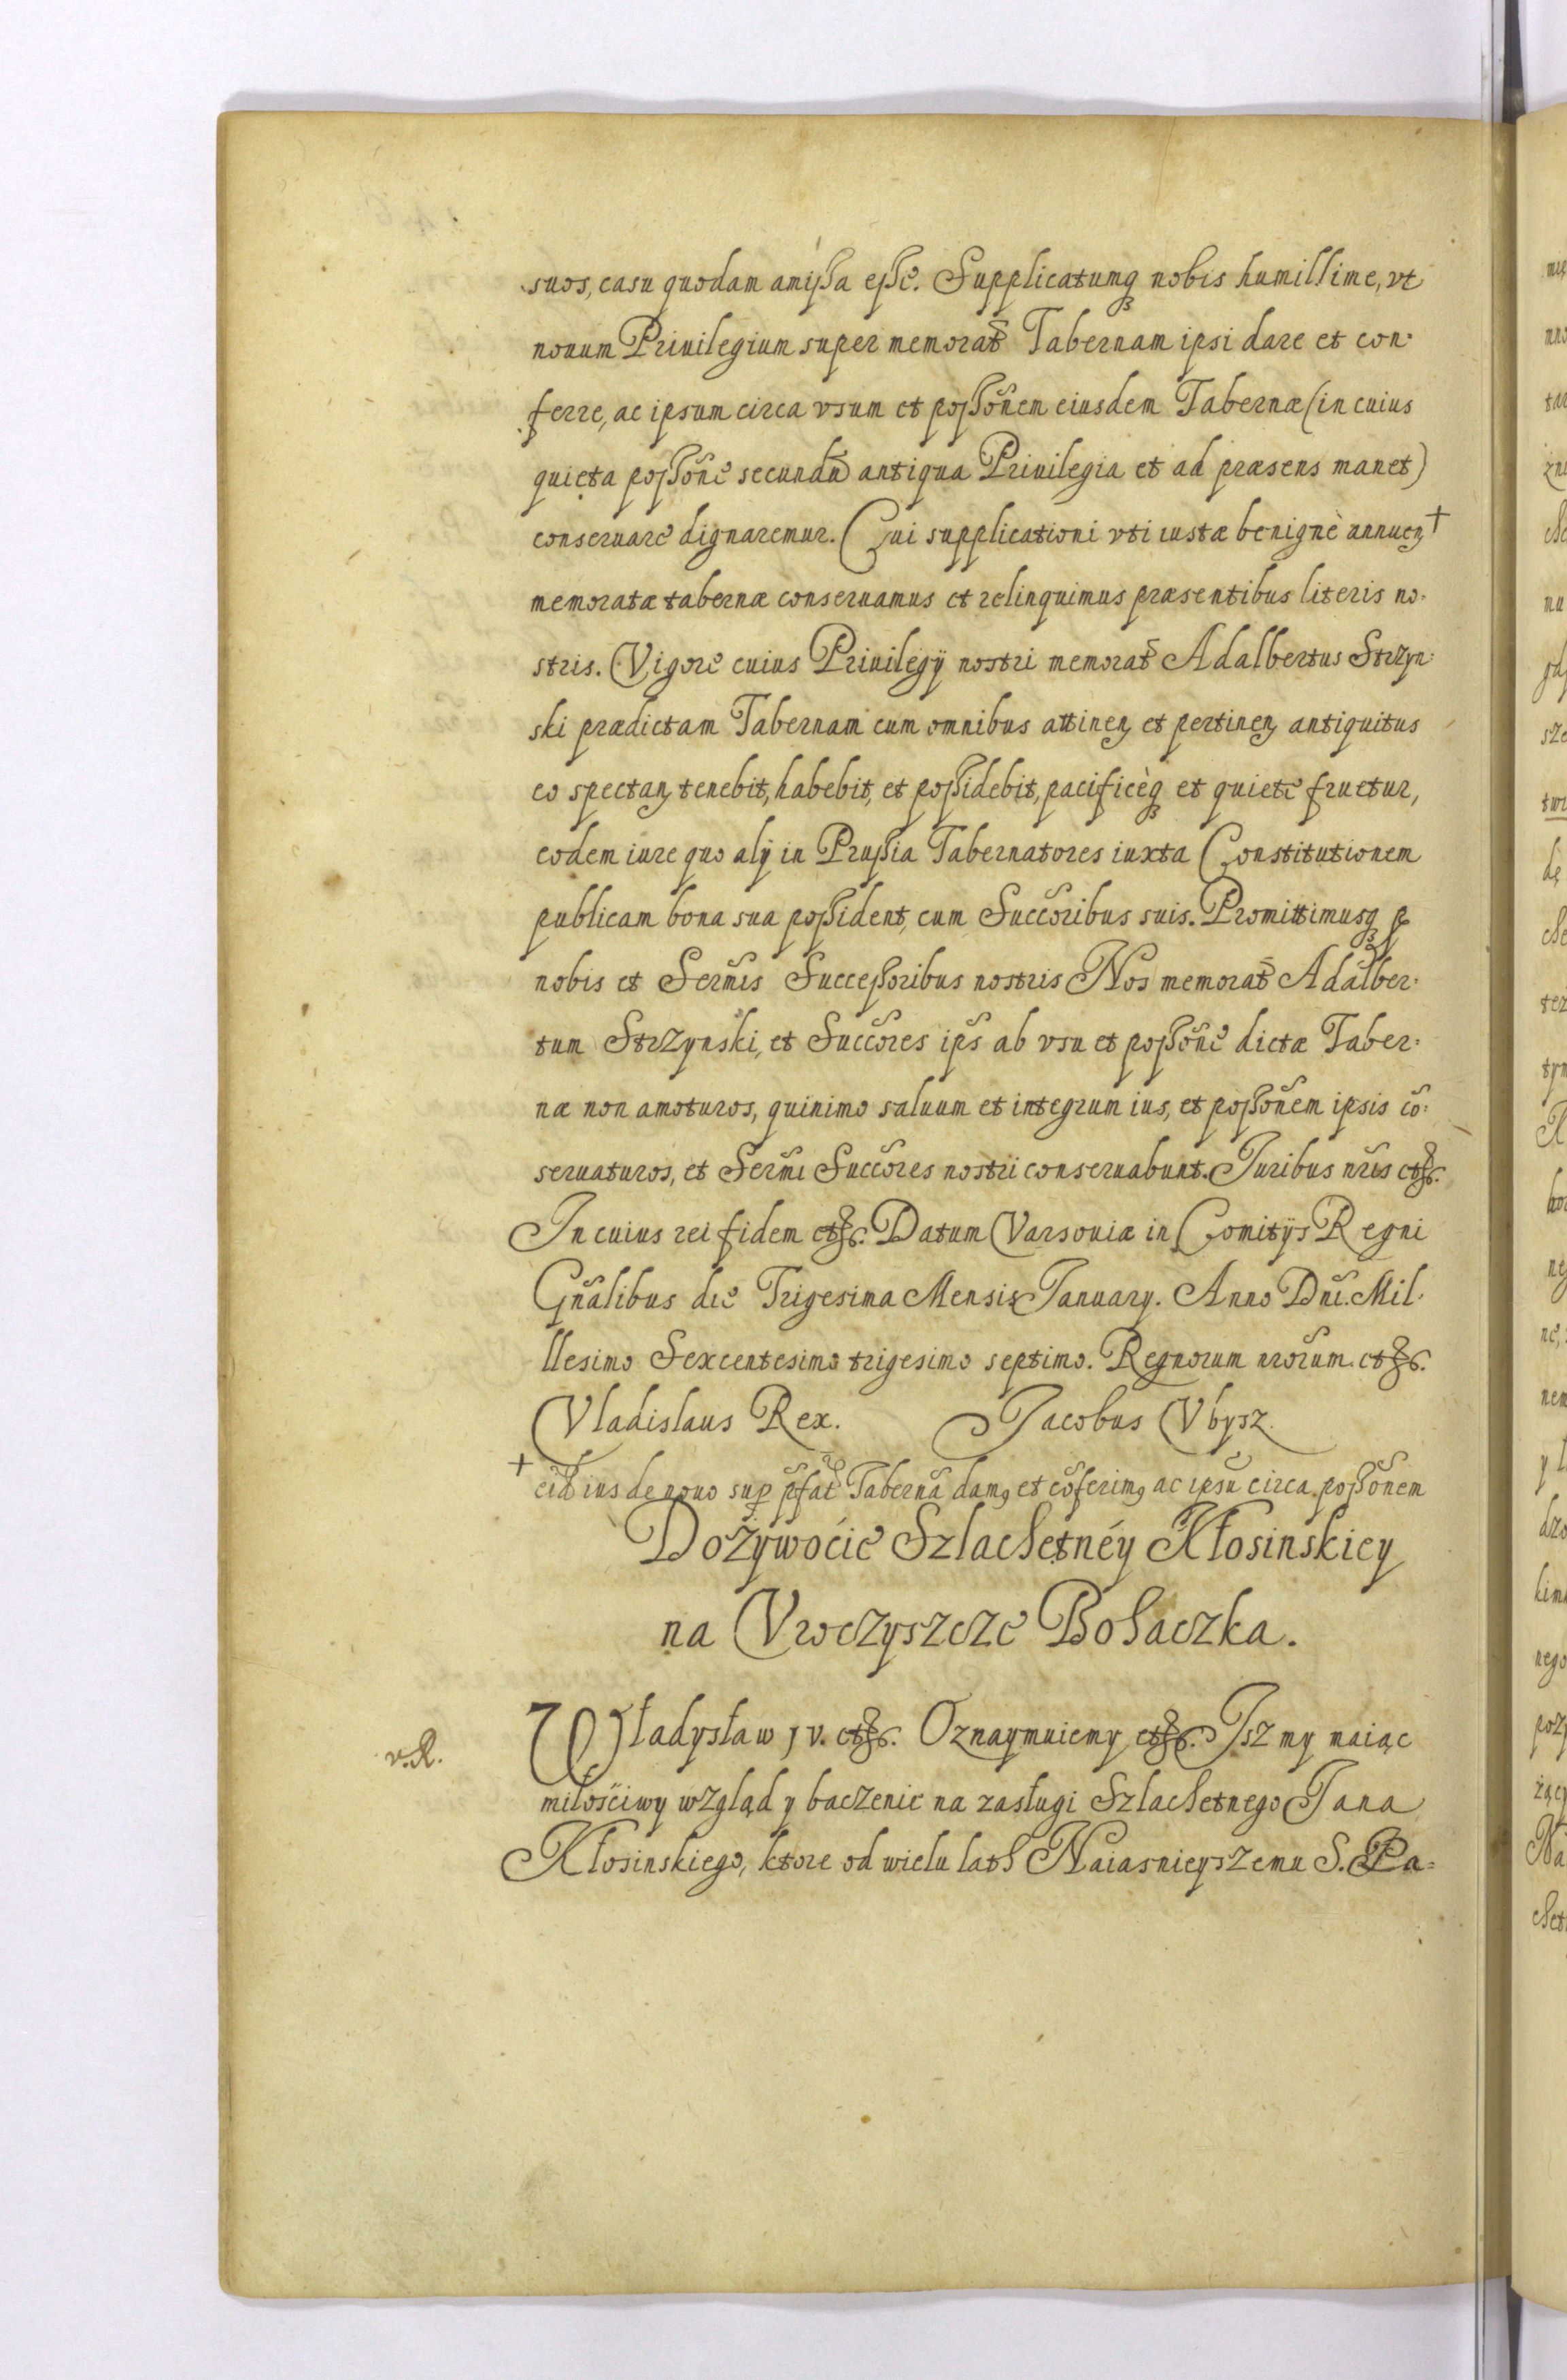 suos, casu quodam amißa eße. Supplicatumq3 nobis humillime, vt
nouum Priuilegium super memorat̃ Tabernam ipsi dare et con-
ferre, ac ipsum circa vsum et poßõnem eiusdem Tabernæ (in cuius
quieta poßõne secundũ antiqua Priuilegia et ad præsens manet)
conseruare dignaremur. Qui supplicationi vti iustæ benignè annueñ †
memoratæ tabernæ conseruamus et relinquimus præsentibus literis no-
stris. Vigore cuius Priuilegÿ nostri memorat̃ Adalbertus Strzyn-
ski prædictam Tabernam cum omnibus attineñ et pertineñ antiquitus
eo spectañ tenebit, habebit, et poßidebit, pacificèq3 et quiete fruetur,
eodem iure quo alÿ in Prußia Tabernatores iuxta Constitutionem
publicam bona sua poßident, cum Succõribus suis. Promittimusq3 ꝓ
nobis et Serm̃is Succeßoribus nostris Nos memorat̃ Adalber-
tum Strzynski, et Succõres ip̃s ab vsu et poßõne dictæ Taber-
næ non amoturos, quinimo saluum et integrum ius, et poßõnem ipsis cõ-
seruaturos, et Serm̃i Succõres nostri conseruabunt. Juribus nr̃is etc.
In cuius rei fidem etc. Datum Varsouiæ in Comitÿs Regni
Gñalibus die Trigesima Mensis January. Anno Dñi. Mil-
llesimo Sexcentesimo trigesimo septimo. Regnorum nrõrum. etc.
Vladislaus Rex. Jacobus Vbysz.
† eid̃ ius de nouo suꝑ p̃fat̃ Tabernã damꝰ et cõferimꝰ ac ipsũ circa poßõnem
Dożywoćie Szlachetnéy Kłosinskiey
na Vroczyszcze Bohaczka.
v.R.
Władysław jv. etc. Oznaymuiemy etc. Jsz my maiąc
miłosciwy wzgląd y baczenie na zasługi Szlachetnego Jana
Kłosinskiego, ktore od wielu lath Naiasnieyszemu S. Pa-